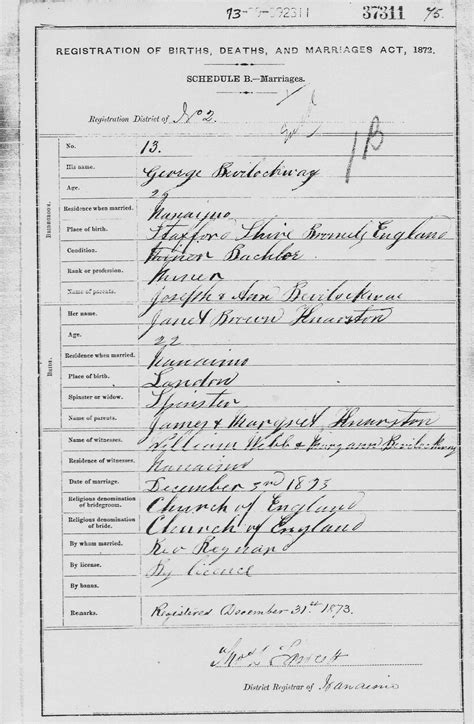 73-09-092311 37311 75.
REGISTRATION OF BIRTHS, DEATHS, AND MARRIAGES ACT, 1872.
SCHEDULE B.—Marriages.
Registration District of No 2.
No. 13.
His name. George Bevilockway
Age. 29
Residence when married. Nanaimo
Place of birth. Stafford Shire England
Condition. Miner Bachlor
Rank or profession. Miner
Name of parents. Joseph & Ann Bevilockway
Her name. Janet Brown Knarston
Age. 22
Residence when married. Nanaimo
Place of birth. London
Spinster or widow. Spinster
Name of parents. James & Margret Knarston
Name of witnesses. William Webb & Mary ann Bevilockway
Residence of witnesses. Nanaimo
Date of marriage. December 3rd 1873
Religious denomination of bridegroom. Church of England
Religious denomination of bride. Church of England
By whom married. Rev Reynard
By license. By licence
By banns.
Remarks. Registered December 31st 1873.
District Registrar of Nanaimo
Bridegroom.
Bride.